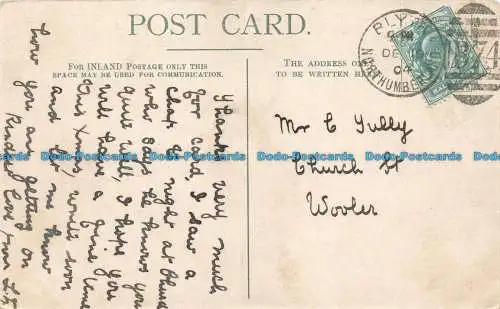 POST CARD.
FOR INLAND POSTAGE ONLY THIS
SPACE MAY BE USED FOR COMMUNICATION.
THE ADDRESS ONLY
TO BE WRITTEN HERE
BLY
DE
04
NORTHUMBER
Thanks very much
for card I saw a
chap to night at Church
who says he knows you
quite well, I hope you
will have a fine time
this Xmas, write soon
and let me know
how you are getting on
Kindest love from
Mr C Gully
Church St
Wooler
Dodo-Postcards Dodo-Postcards Dodo-Postcards Dodo-Postcards Dodo-Postcards